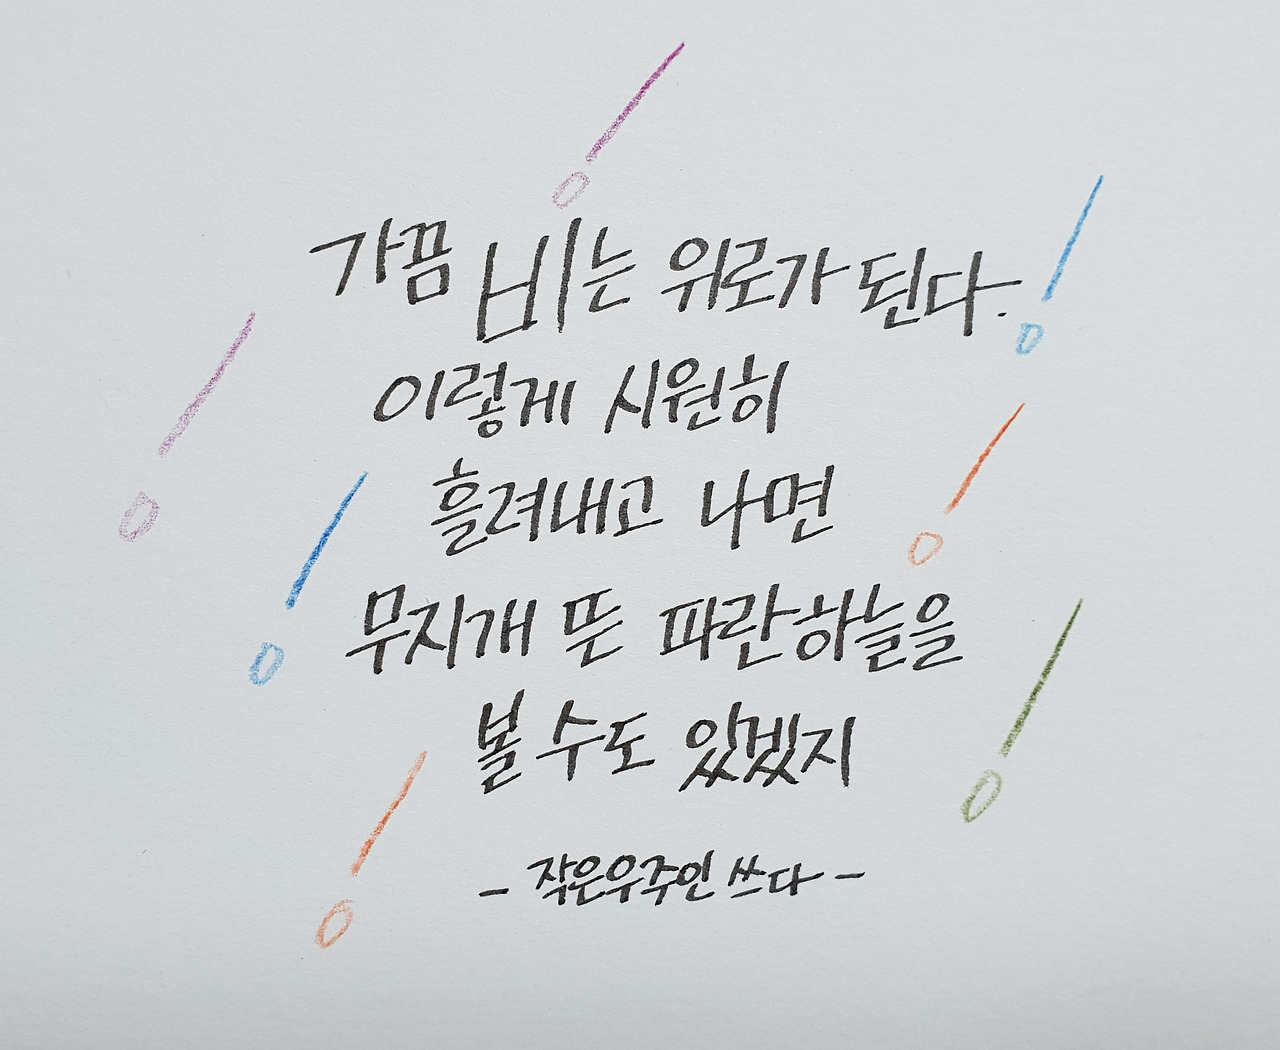 가끔 비는 위로가 된다.
이렇게 시원히
흘려내고 나면
무지개 뜬 파란하늘을
볼 수도 있겠지
- 작은우주인 쓰다 -